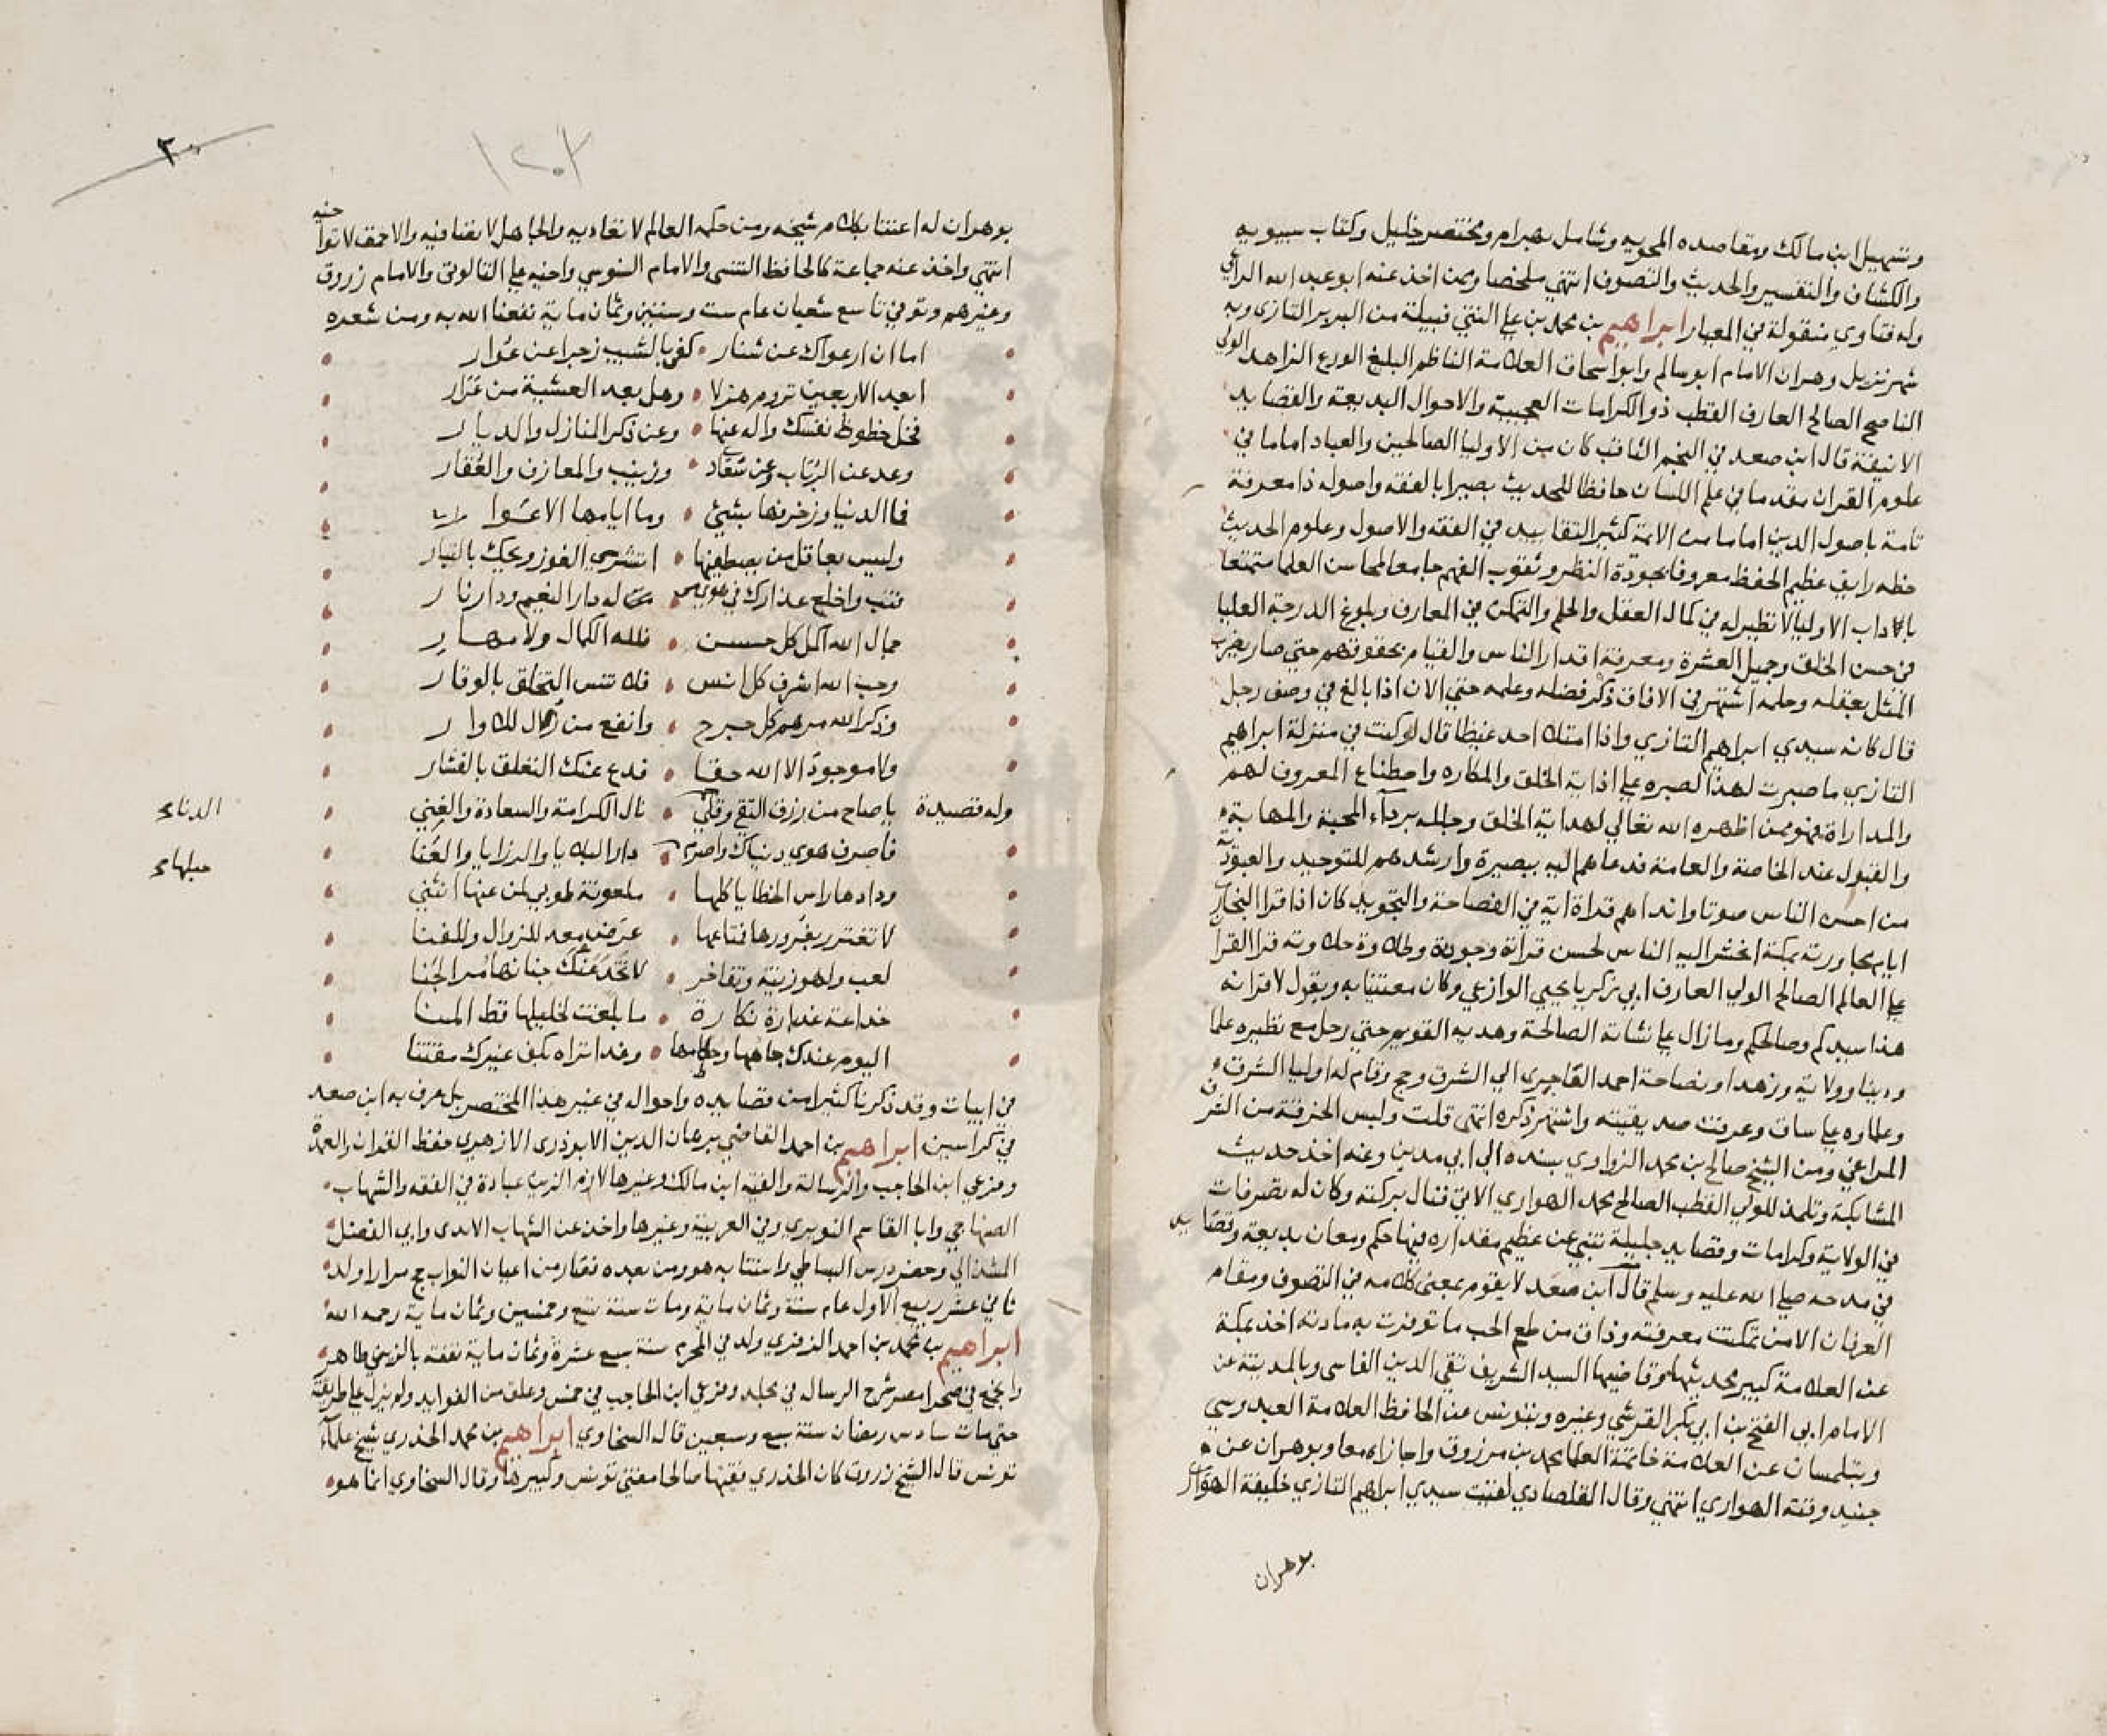 وتسهيل ابن مالك ومقاصده المحويه وشامل بهرام ومختصر خليل وكتاب سيبويه
والكشاف والتفسير والحديث والتصوف انتهي ملخصا وممن اخذ عنه ابو عبد الله الراعي
وله فتاوي منقولة في المعيار ابراهيم بن محمد بن علي التنتي قبيلة من البربر التازي وبه
شهر نزيل وهران الامام ابو سالم وابو اسحاق العلامة الناظم البليغ الورع الزاهد الولي
الناصح الصالح العارف القطب ذو الكرامات العجيبة والاحوال البديعة والقصايد
الانيقة قال ابن صعد في النجم الثاقب كان من الاوليا الصالحين والعباد اماما في
علوم القران مقدما في علم اللسان حافظا للحديث بصيرا بالفقه واصوله ذا معرفة
تامة باصول الدين اماما من الائمة كثير التقاييد في الفقه والاصول وعلوم الحديث
خطه رايق عظيم الحفظ معروفا بجودة النظر وثقوب الفهم جامعا لمحاسن العلما متمتعا
بالاداب الاوليا لا نظير له في كمال العقل والحلم والتمكن في المعارف وبلوغ الدرجة العليا
في حسن الخلق وجميل العشرة ومعرفة اقدار الناس والقيام بحقوقهم حتي صار يضرب
المثل بعقله وحلمه اشتهر في الافاق ذكر فضله وعلمه حتي الان اذا بالغ في وصف رجل
قال كانه سيدي ابراهيم التازي واذا امتلا احد غيظا قال لو كنت في منزلة ابراهيم
التازي ما صبرت لهذا لصبره علي اذاية الخلق والمكاره واصطناع المعروف لهم
والمداراة فهو ممن اظهره الله تعالي لهداية الخلق وجلله بردآء المحبة والمهابة
والقبول عند الخاصة والعامة فدعاهم اليه ببصيرة وارشدهم للتوحيد والعبودية
من احسن الناس صوتا واندا هم قراة اية في الفصاحة والتجويد كان اذا قرا البخاري
ايام مجاورته بمكة انحشر اليه الناس لحسن قراته وجودة وطلاوة حلاوته قرا القرا
علي العالم الصالح الولي العارف ابي زكريا يحيي الوازعي وكان معتنيا به ويقول لاقرانه
هذا سيدكم وصالحكم وما زال علي نشاته الصالحة وهديه القويم حتي رحل مع نظيره علما
ودينا وولاية وزهدا وفصاحة احمد الماجري الي الشرق وحج وقام له اوليا الشرق
وعلماوه علي ساق وعرفت صديقيته واشتهر ذكره انتهي قلت ولبس الخرقة من الشرف
المراغي ومن الشيخ صالح بن محمد الزواوي بسنده الي ابي مدين وعنه اخذ حديث
المشابكة وتلمذ للولي القطب الصالح محمد الهواري الاتي فنال بركته وكان له تصرفات
في الولاية وكرامات وقصايد جليلة تنبي عن عظيم مقداره فيها حكم ومعان بديعة وقصايد
في مدحه صلي الله عليه وسلم قال ابن صعد لا يقوم بمعني كلامه في التصوف ومقام
العرفان الا من تمكنت معرفته وذاق من طعم الحب ما توفرت به مادته اخذ بمكة
عن العلامة كبير محدثيها وقاضيها السيد الشريف تقي الدين الفاسي وبالمدينة عن
الامام ابي الفتح بن ابي بكر القرشي وغيره وبتونس عن الحافظ العلامة العبدوسي
وبتلمسان عن العلامة خاتمة العلما محمد بن مرزوق واجازاه معا وبوهران عن
جنيد وقته الهواري انتهي وقال القلصادي لقيت سيدي ابراهيم التازي خليفة الهواري
بوهران
٣٠
١٢٠٣
بوهران له اعتنا بكلام شيخه ومن حكمه العالم لا تعاديه والجاهل لا تصافيه والاحمق لا تواخيه
انتهي واخذ عنه جماعة كالحافظ التنسي والامام السنوسي واخيه علي التالوتي والامام زروق
وغيرهم وتوفي تاسع شعبان عام ست وستين وثمان ماية نفعنا الله به ومن شعره
اما ان ارعواك عن شنار • كفي بالشيب زجرا عن عوار
ابعد الاربعين تروم هزلا • وهل بعد العشية من عرار
فخل حظوظ نفسك واله عنها • وعن ذكر المنازل والديار
وعد عن الرباب وعن سعاد • وزينب والمعازف والعقار
فما الدنيا وزخرفها بشي • وما ايامها الا عوار
وليس بعاقل من يصطفيها • اتشري الفوز ويحك بالتبار
فتب واخلع عذارك في هوي من • له دار النعيم ودار نار
جمال الله اكمل كل حسن • فلله الكمال ولا مهار
وحب الله اشرف كل انس • فلا تنس التخلق بالوقار
وذكر الله مرهم كل جرح • وانفع من زلال للاوار
ولا موجود الا الله حقا • فدع عنك التعلق بالفشار
وله قصيدة يا صاح من رزق التقي وقلي • نال الكرامة والسعادة والغني
فاصرف هوي دنياك واصرم • دار البلايا والرزايا والعنا
ودادها راس الخطايا كلها • ملعونة طوبي لمن عنها انثني
لا تغترر بغرورها فمتاعها • عرض معد للزوال وللفنا
لعب ولهو زينة وتفاخر • لا تخدعنك جنانها مر الجنا
خداعة غدارة نكارة • ما بلغت لخليلها قط المنا
اليوم عندك جاهها وحطامها • وغدا تراه بكف غيرك مقتنا
في ابيات وقد ذكرنا كثيرا من قصايده واحواله في غير هذا المختصر بل عرف به ابن صعد
في كراسين ابراهيم بن احمد القاضي برهان الدين الابوذري الازهري حفظ القران والعمدة
وفرعي ابن الحاجب والرسالة والفية ابن مالك وغيرها لازم الزين عبادة في الفقه والشهاب
الصنهاجي وابا القاسم النويري وفي العربية وغيرها واخذ عن الشهاب الابدي وابي الفضل
المشذالي وحضر درس البساطي واستنابه هو ومن بعده فصار من اعيان النواب حج مرارا ولد
ثاني عشر ربيع الاول عام ستة وثمان ماية ومات سنة تسع وخمسين وثمان ماية رحمه الله
ابراهيم بن محمد بن احمد الزفري ولد في المحرم سنة سبع عشرة وثمان ماية تفقه بالزيني طاهر
وانجمع في صحرا مصر شرح الرسالة في مجلد وفرعي ابن الحاجب في خمس وعلق من الفوايد ولم يزل علي طريقته
حتي مات سادس رمضان سنة سبع وسبعين قاله السخاوي ابراهيم بن محمد الخدري شيخ علمآء
تونس قال الشيخ زروق كان الخدري فقيها صالحا مفتي تونس وكبيرها وقال السخاوي انما هو
الدناء